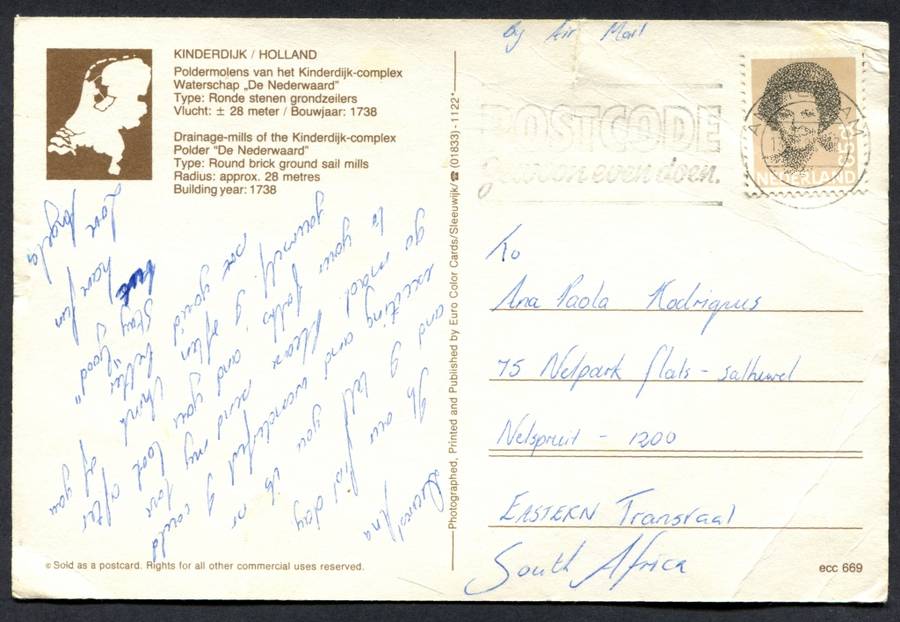 By Air Mail
KINDERDIJK / HOLLAND
Poldermolens van het Kinderdijk-complex
Waterschap „De Nederwaard"
Type: Ronde stenen grondzeilers
Vlucht: ± 28 meter / Bouwjaar: 1738
Drainage-mills of the Kinderdijk-complex
Polder "De Nederwaard"
Type: Round brick ground sail mills
Radius: approx. 28 metres
Building year: 1738
Dearest Ana
Its our first day
and I tell you its so
exciting and wonderful I could
go mad. Please send my love
to your folks and you look after
yourself. I often think of you
see you'd better
Stay "Good"
have fun
Love
Angela
Photographed, Printed and Published by Euro Color Cards/Sleeuwijk/ ☎ (01833) - 1122*
POSTCODE
gewoon even doen.
NEDERLAND
To
Ana Paola Rodrigues
75 Nelpark flats -
Nelspruit - 1200
EASTERN Transvaal
South Africa
© Sold as a postcard. Rights for all other commercial uses reserved.
ecc 669